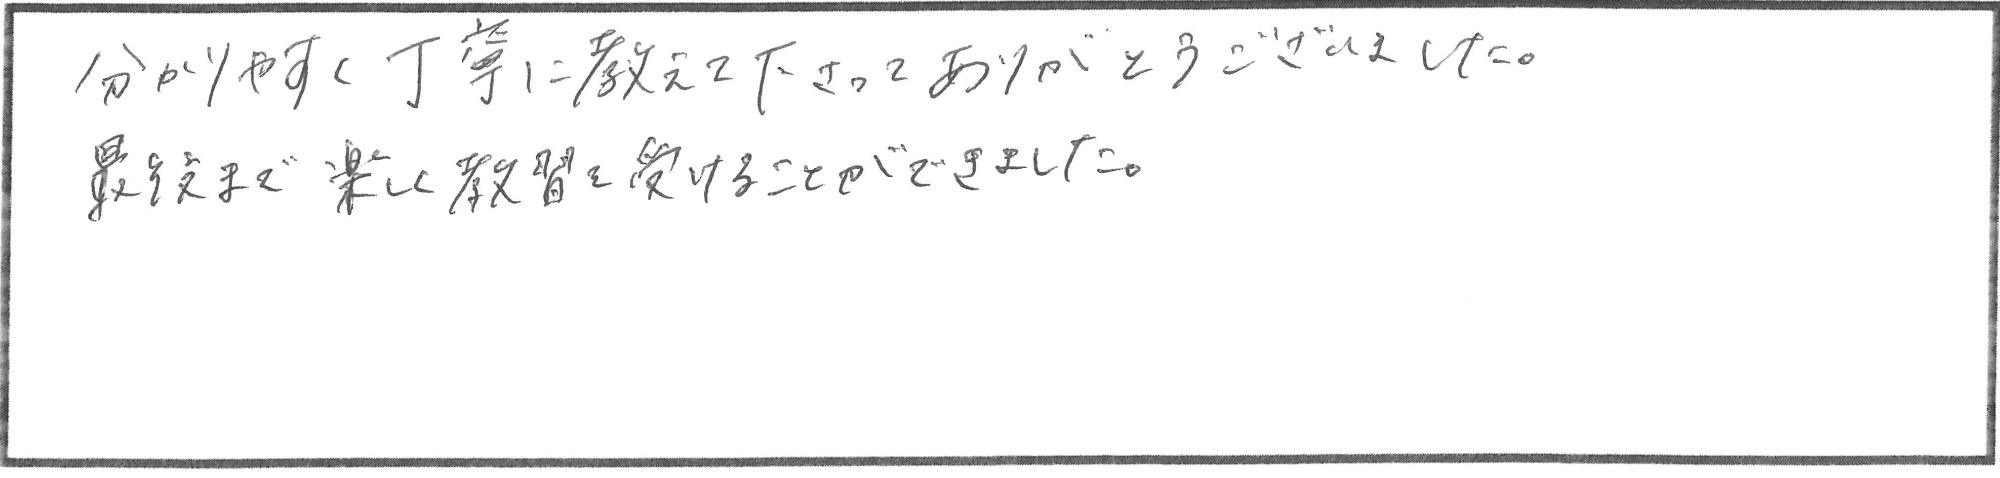 分かりやすく丁寧に教えて下さってありがとうございました。
最後まで楽しく教習を受けることができました。